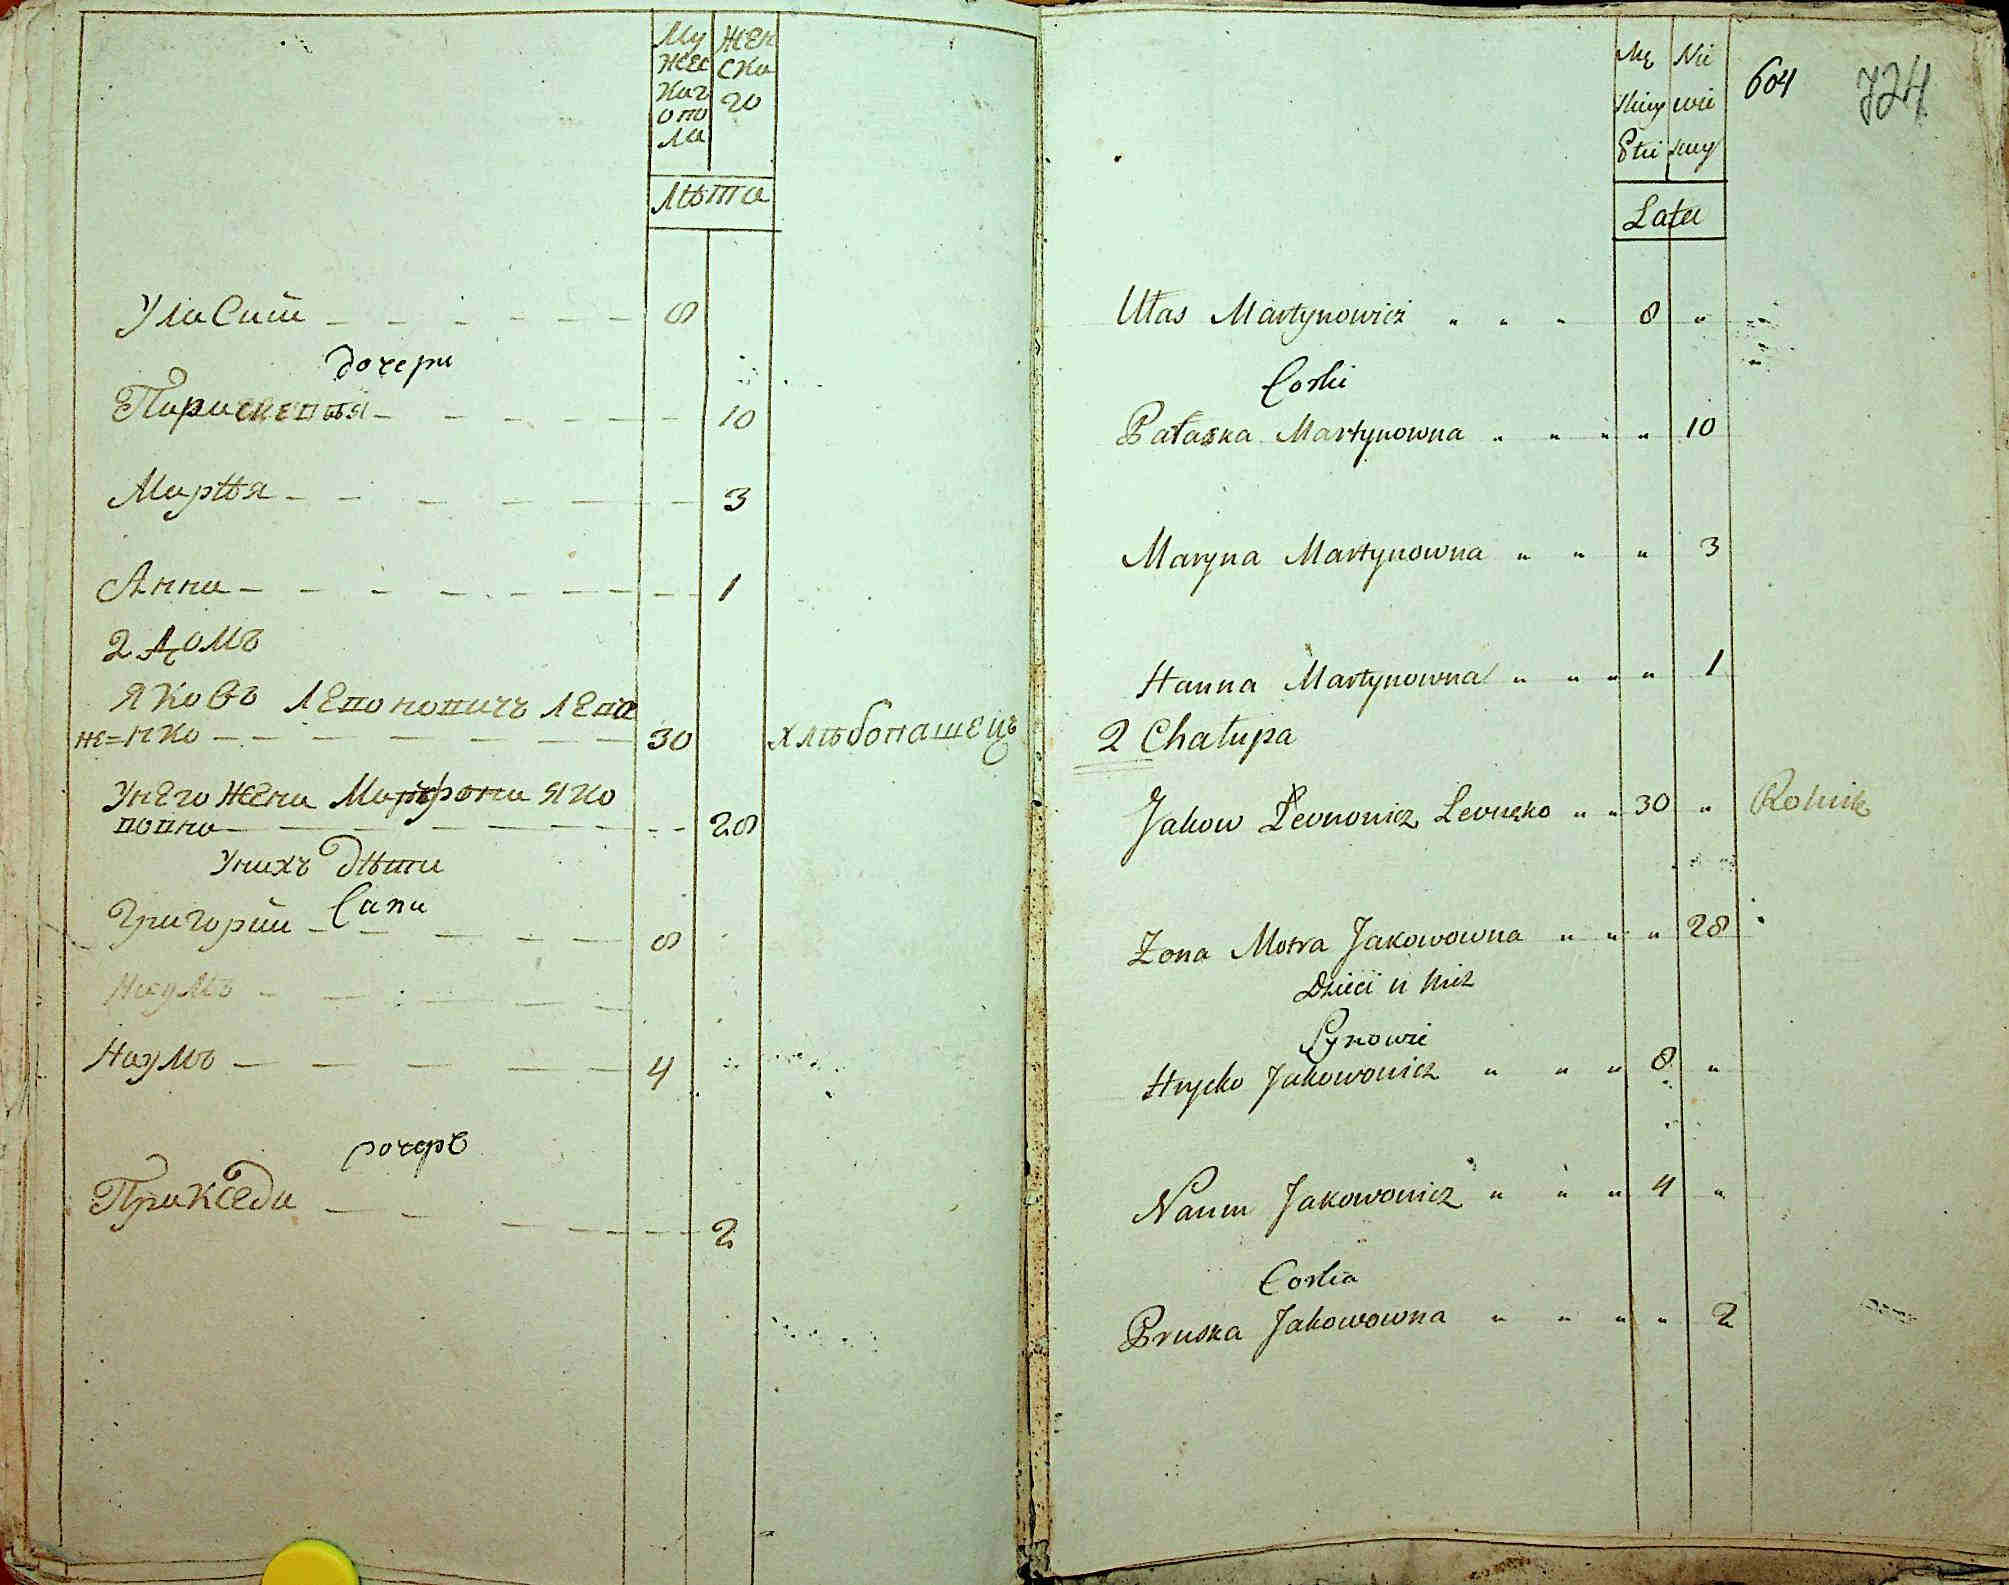 Му Жен
жес ска
каг го
опо
ла
Лѣта
Уласий — — — — — — 8
дочери
Параскевья — — — — — — 10
Марѣя — — — — — — 3
Анна — — — — — — 1
2 Домъ
Яковъ Левоновичъ Леве
не=нко — — — — — — 30 хлѣбопашецъ
Унего жена Матрона Яко
вовна — — — — — — 28
Унихъ дѣти
Сини
Григорий — — — — — 8
Наумъ — — — — —
Наумъ — — — — — 4
дочерь
Праксѣда — — — — — — 2
Mę Nie 604 724
skiey wie
Płci sciey
Lata
Ułas Martynowicz " " " 8 "
Corki
Pałaska Martynowna " " " " 10
Maryna Martynowna " " " 3
Hanna Martynowna " " " " 1
2 Chałupa
Jakow Levonowicz Levnęko " " 30 " Rolnik
Żona Motra Jakowowna " " " 28
Dzieci u nich
Synowie
Hrycko Jakowowicz " " " 8 "
Naum Jakowowicz " " " 4 "
Corka
Pruska Jakowowna " " " " 2